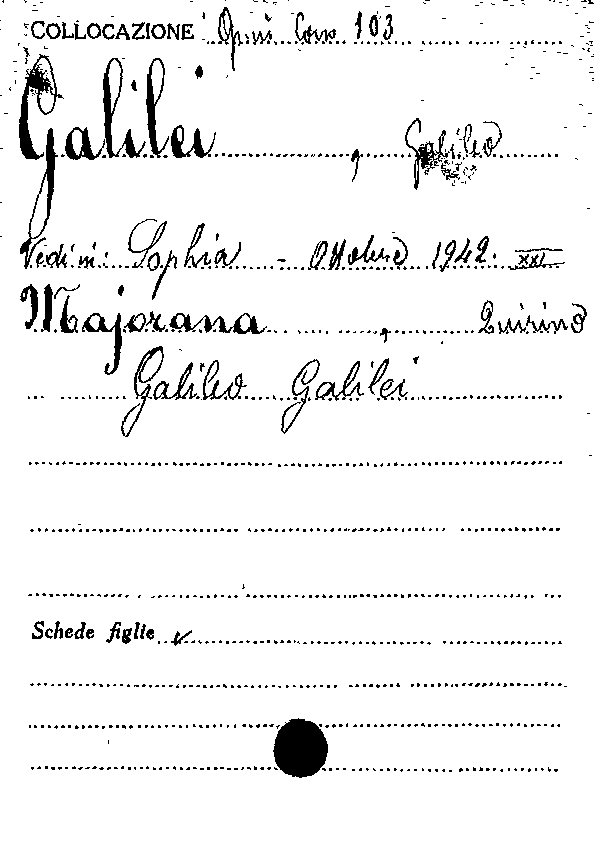 COLLOCAZIONE 103
Galilei , Galileo
Vedi in: Sophia - Ottobre 1942. XXI
Majorana , Quirino
Galileo Galilei
Schede figlie